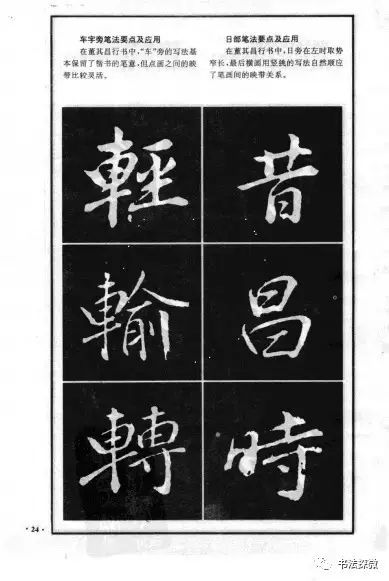 车字旁笔法要点及应用
在董其昌行书中，“车”旁的写法基
本保留了楷书的笔意，但点画之间的映
带比较灵活。
日部笔法要点及应用
在董其昌行书中，日旁在左时取势
窄长，最后横画用竖挑的写法自然顺应
了笔画间的映带关系。
輕 昔
輸 昌
轉 時
·24·
书法探教